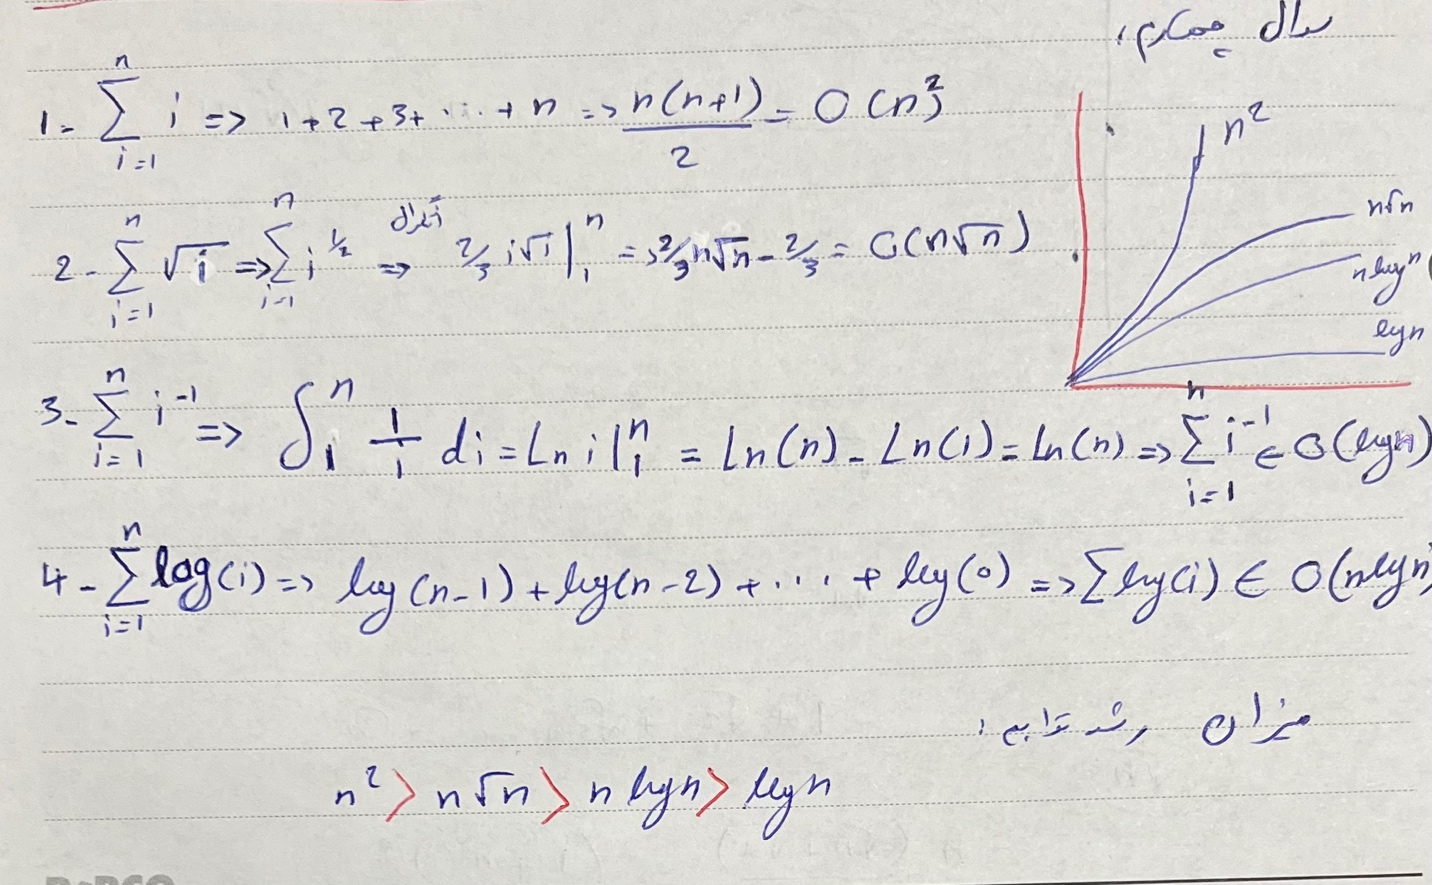 سوال چهارم:
1- \sum_{i=1}^{n} i => 1+2+3+...+n => \frac{n(n+1)}{2} = O(n^2)
n^2
n√n
n log n
log n
2- \sum_{i=1}^{n} √i => \sum_{i=1}^{n} i^{1/2} انتگرال => 2/3 i√i |_1^n => 2/3 n√n - 2/3 = O(n√n)
3- \sum_{i=1}^{n} i^{-1} => \int_1^n \frac{1}{i} di = Ln i|_1^n = Ln(n) - Ln(1) = Ln(n) => \sum_{i=1}^{n} i^{-1} ∈ O(log n)
4- \sum_{i=1}^{n} log(i) => log(n-1) + log(n-2) + ... + log(0) => \sum log(i) ∈ O(n log n)
میزان رشد توابع:
n^2 > n√n > n log n > log n